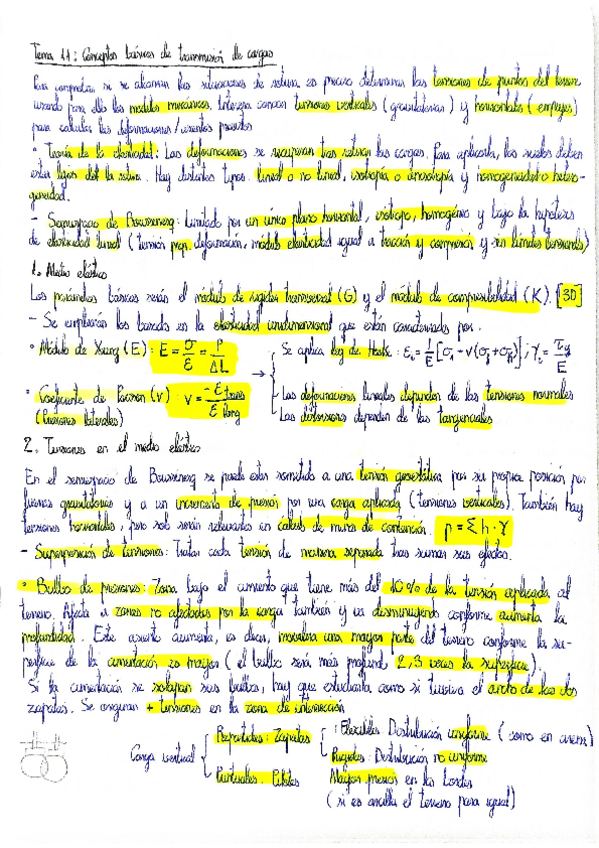 Tema 11: Conceptos básicos de transmisión de cargas
Para comprobar si se alcanzan las situaciones de rotura, es preciso determinar las tensiones de puntos del terreno
usando para ello los modelos mecánicos. Interesa conocer tensiones verticales (gravitatorias) y horizontales (empujes)
para calcular las deformaciones/asientos previstos
• Teoría de la elasticidad: Las deformaciones se recuperan tras retirar las cargas. Para aplicarla, los suelos deben
estar lejos de la rotura. Hay distintos tipos: lineal o no lineal, isotropía o anisotropía y homogeneidad o hetero-
geneidad.
- Semiespacio de Boussinesq: Limitado por un único plano horizontal, isótropo, homogéneo y bajo la hipótesis
de elasticidad lineal (tensión prop. deformación, módulo elasticidad igual a tracción y compresión y sin límites tensionales)
1. Medio elástico
Los parámetros básicos serán el módulo de rigidez transversal (G) y el módulo de compresibilidad (K). [30]
- Se emplearán los basados en la elasticidad unidimensional que están caracterizados por:
• Módulo de Young (E): E = σ/ε = P/ΔL
Se aplica ley de Hooke: εᵢ = 1/E [σᵢ - ν(σⱼ + σₖ)]; γᵢ = τᵢⱼ/E
• Coeficiente de Poisson (ν): ν = -ε trans/ε long
(Presiones laterales)
Las deformaciones lineales dependen de las tensiones normales
Las distorsiones dependen de las tangenciales
2. Tensiones en el medio elástico
En el semiespacio de Boussinesq se puede estar sometido a una tensión geostática por su propia posición por
fuerzas gravitatorias y a un incremento de presión por una carga aplicada (tensiones verticales). También hay
tensiones horizontales, pero solo serán relevantes en cálculo de muros de contención. p = Σh·γ
- Superposición de tensiones: Tratar cada tensión de manera separada tras sumar sus efectos.
• Bulbo de presiones: Zona bajo el cimiento que tiene más del 10% de la tensión aplicada al
terreno. Afecta a zonas no afectadas por la carga también y va disminuyendo conforme aumenta la
profundidad. Este asiento aumenta, es decir, moviliza una mayor parte del terreno conforme la su-
perficie de la cimentación es mayor (el bulbo será más profundo, 2,3 veces la superficie).
Si la cimentación se solapan sus bulbos, hay que estudiarla como si tuviera el ancho de las dos
zapatas. Se originan + tensiones en la zona de intersección
Carga vertical
Repartidas: Zapatas
: Flexibles: Distribución uniforme (como en arenas)
Rígidas: Distribución no uniforme
Puntuales: Pilotes
Mayor presión en los bordes
(si es arcilla el terreno pasa igual)